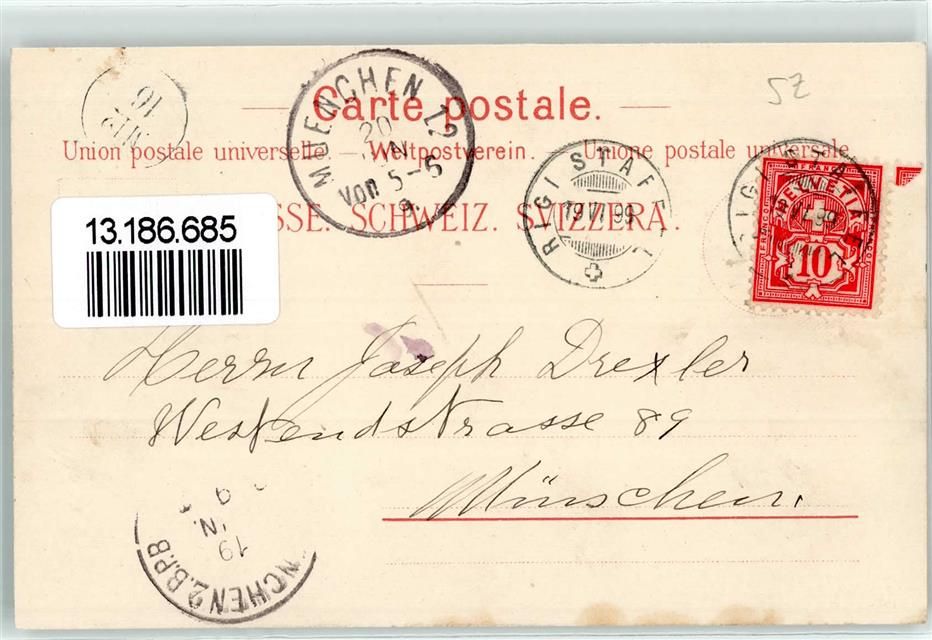 SZ
Carte postale.
Union postale universelle. — Weltpostverein. — Unione postale universale.
SSE. SCHWEIZ. SVIZZERA.
MUENCHEN 12
20
Von 5-6
RIGI STAFFEL
19 VI 99
HELVETIA
FRANCO
10
13.186.685
Herrn Joseph Drexler
Westendstrasse 89
München.
19
NCHEN 2.B.P.B